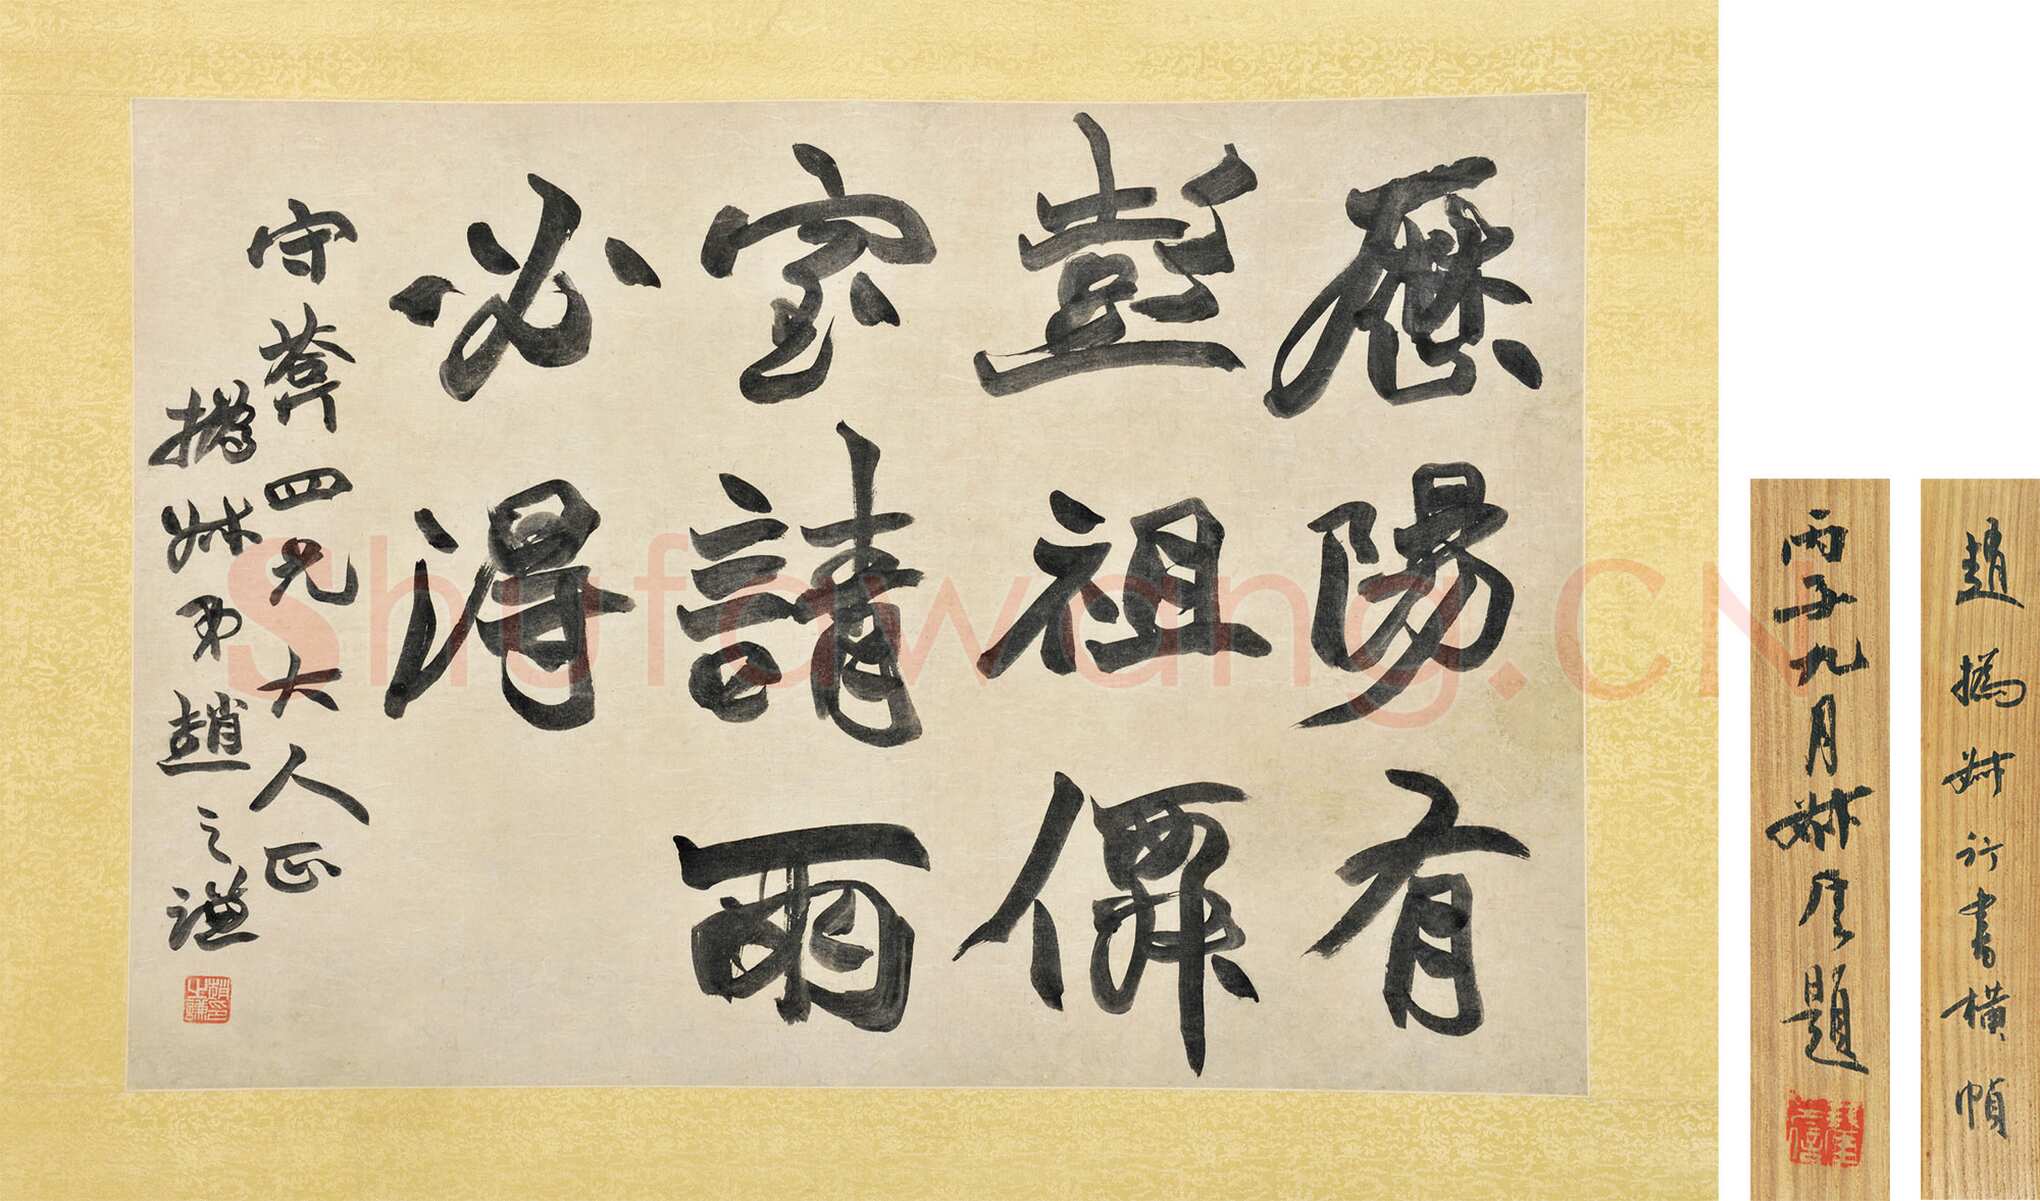 歷陽有
彭祖僊
室請雨
必得
守葊四兄大人正
撝叔弟趙之謙
趙之謙印
丙子九月叔厓題
趙撝叔行書橫幀
Shufawang.CN